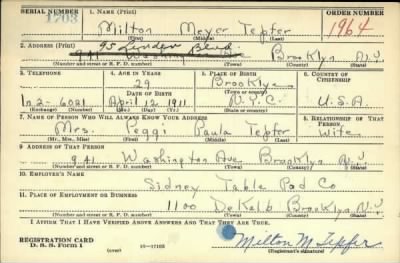 SERIAL NUMBER 1. NAME (Print) ORDER NUMBER
1703 Milton Meyer Tepfer 1964
(First) (Middle) (Last)
2. ADDRESS (Print) 95 Linden Blvd
941 Washington Brooklyn N.Y.
(Number and street or R. F. D. number) (Town) (County) (State)
3. TELEPHONE 4. AGE IN YEARS 5. PLACE OF BIRTH 6. COUNTRY OF CITIZENSHIP
29 Brooklyn
DATE OF BIRTH (Town or county)
In 2-6021 April 12 1911 N.Y.C. U.S.A.
(Exchange) (Number) (Mo.) (Day) (Yr.) (State or country)
7. NAME OF PERSON WHO WILL ALWAYS KNOW YOUR ADDRESS 8. RELATIONSHIP OF THAT PERSON
Mrs. Peggi Paula Tepfer wife
(Mr., Mrs., Miss) (First) (Middle) (Last)
9. ADDRESS OF THAT PERSON
941 Washington Ave Brooklyn N.Y.
(Number and street or R. F. D. number) (Town) (County) (State)
10. EMPLOYER'S NAME
Sidney Table Pad Co
11. PLACE OF EMPLOYMENT OR BUSINESS
1100 DeKalb Brooklyn N.Y.
(Number and street or R. F. D. number) (Town) (County) (State)
I AFFIRM THAT I HAVE VERIFIED ABOVE ANSWERS AND THAT THEY ARE TRUE.
REGISTRATION CARD
D. S. S. Form 1 (over) 16—17105 Milton M Tepfer
(Registrant's signature)